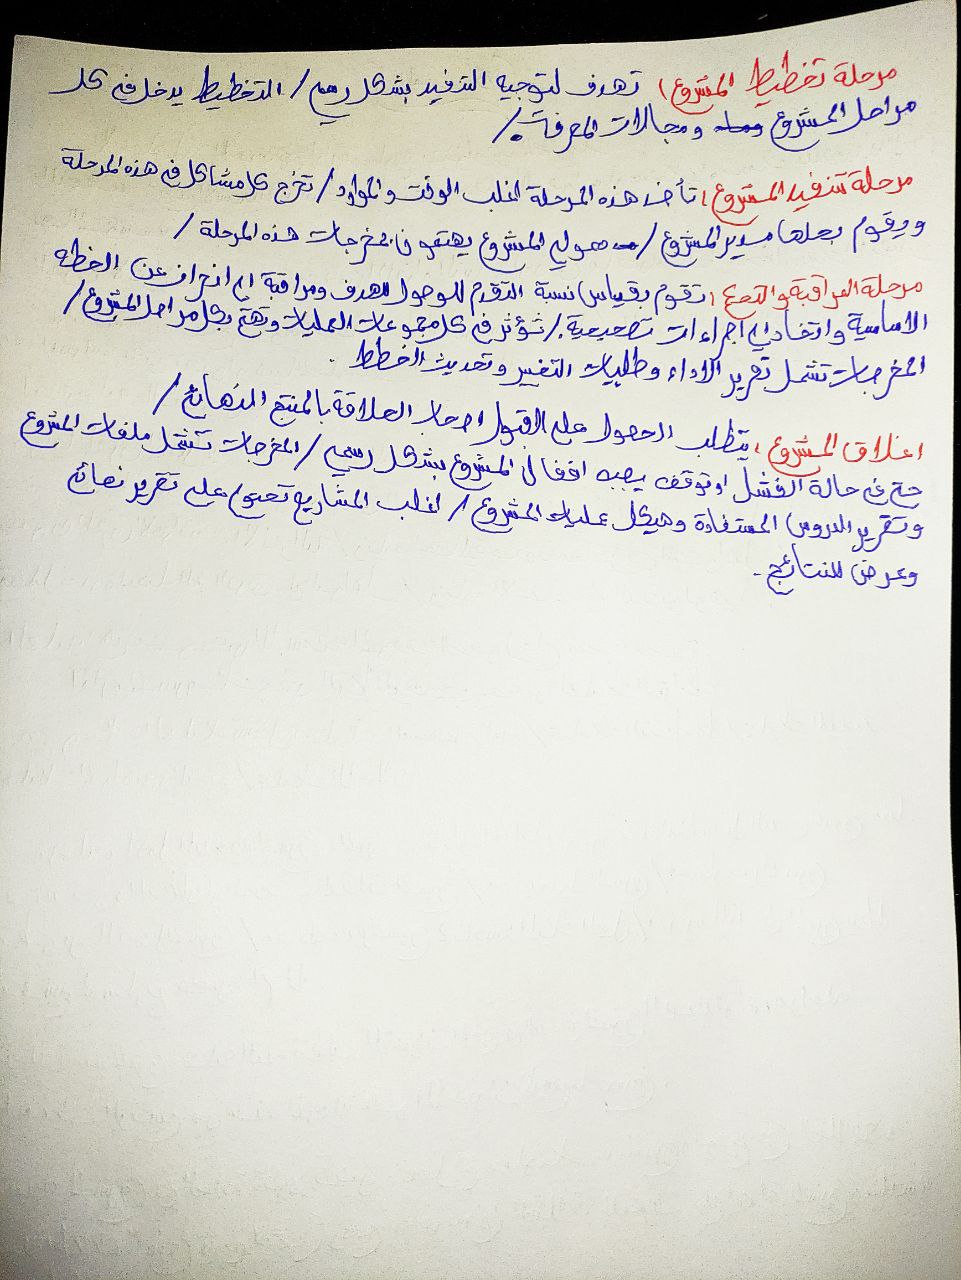 مرحلة تخطيط المشروع: تهدف لتوجيه التنفيذ بشكل رسمي / التخطيط يدخل في كل
مراحل المشروع ومجالات المعرفة. /
مرحلة تنفيذ المشروع: تأخذ هذه المرحلة اغلب الوقت والموارد / تخرج كل مشاكل في هذه المرحلة
ويقوم بحلها مدير المشروع / ممولي المشروع يهتمون بمخرجات هذه المرحلة /
مرحلة المراقبة والتحكم: تقوم بقياس نسبة التقدم للوصول للهدف ومراقبة اي انحراف عن الخطه
الاساسية واتخاذ اي اجراءات تصحيحية. / تؤثر في كل مجموعات العمليات وتهتم بكل مراحل المشروع /
المخرجات تشمل تقرير الاداء وطلبات التغيير وتحديث الخطط.
اغلاق المشروع: يتطلب الحصول على القبول اصحاب العلاقة بالمنتج النهائي /
حتى في حالة الفشل او توقف يجب اقفال المشروع بشكل رسمي / المخرجات تشمل ملفات المشروع
وتقرير الدروس المستفادة وهيكل عمليات المشروع / اغلب المشاريع تحتوي على تقرير نهائي
وعرض للنتائج.